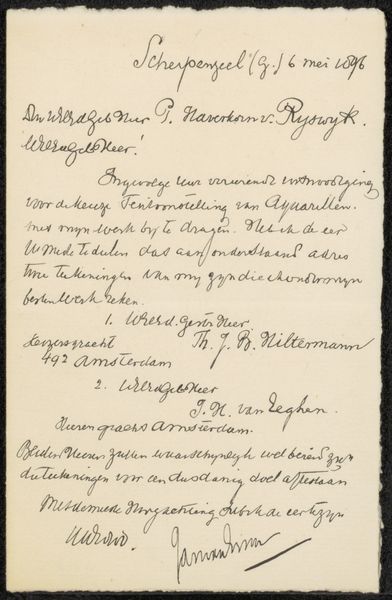 Scherpenzeel (G.) 6 mei 1896
Den WelEdGeb Heer P. Haverkorn v. Rijswijk.
WelEdGeb Heer!
Ingevolge uw vereerende uitnoodiging
voor de keuze Tentoonstelling van Aquarellen
met mijn werk bij te dragen. Heb ik de eer
U mede te deelen dat aan onderstaand adres
twee teekeningen van mij zijn die ik onder mijn
beste werk reken.
1. WelEd. Gestr Heer
Keizersgracht Th. J. B. Hiltermann
492 Amsterdam
2. WelEdGeb Heer
J. H. van Eeghen.
Heerengracht Amsterdam.
Beiden Heeren zullen waarschijnlijk wel bereid zijn
die teekeningen voor een dusdanig doel af te staan
Met de meeste Hoogachting heb ik de eer te zijn